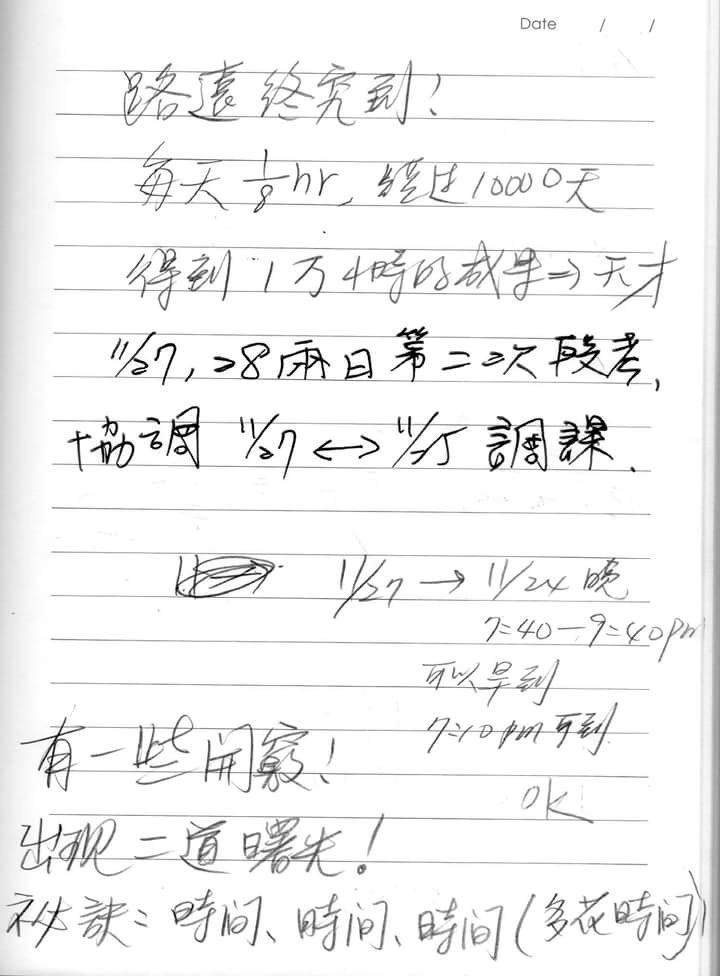 Date / /
路遠終究到!
每天 1/8 hr, 經过 10000天
得到 1万小時的成果⇒天才
11/27, 28 兩日第二次段考,
協調 11/27 ↔ 11/25 調課.
11/27 → 11/24 晚
7:40—9:40pm
可以早到
7:10 pm 可到
OK!
有一些開竅!
出现二道曙光!
祕訣: 時间、時间、時间(多花時间)